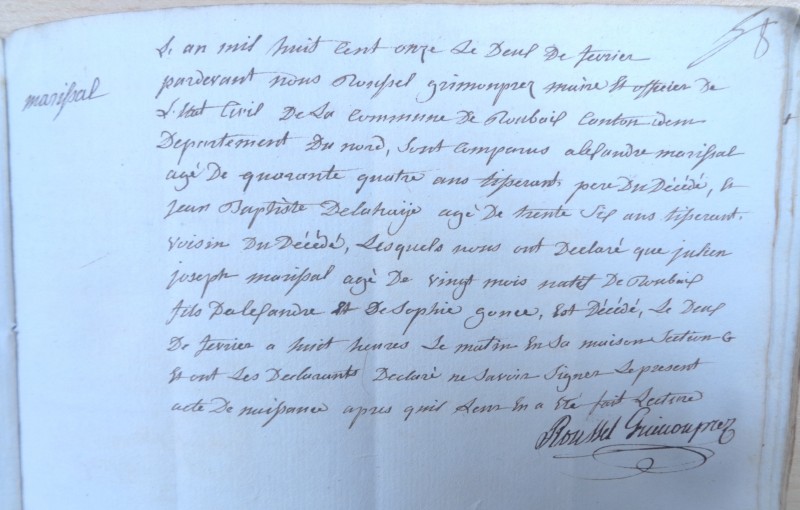 58
marissal
L'an mil huit Cent onze Le Deux De fevrier
pardevant nous Roussel grimonprez maire Et officier De
L'Etat Civil De La Commune De Roubaix Canton idem
Departement Du nord, Sont Comparus alexandre marissal
agé De quarante quatre ans tisserant pere Du Décédé, Et
jean Baptiste Delahaije agé De trente Six ans tisserant.
Voisin Du Décédé, Lesquels nous ont Declaré que julien
joseph marissal agé De Vingt mois natif De Roubaix
fils D'alexandre Et De Sophie, Est Décédé, Le Deux
De fevrier a huit heures Le matin En Sa maison Section G
Et ont Les Declarants Declaré ne Savoir Signer Le present
acte De naissance apres quil Leur En a Eté fait Lecture
Roussel Grimonprez